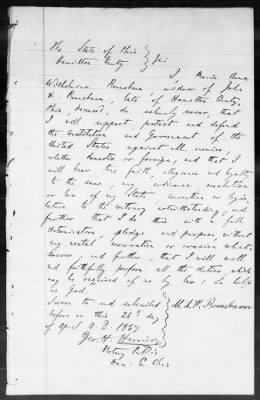 The State of Ohio
Hamilton County } SS:
I Maria Anna
Wilhelmina Rumebaum, widow of John
H. Rumebaum, late of Hamilton County,
Ohio, deceased, do solemnly swear, that
I will support, protect and defend
the Constitution and Government of the
United States against all enemies,
whether domestic or foreign, and that I
will bear true faith, allegiance and loyalty
to the same, any ordinance, resolution
or law of any State, Convention or Legislature,
to the contrary notwithstanding; and
further that I do this with a full
determination, pledge and purpose, without
any mental reservation or evasion whatsoever;
and further, that I will well
and faithfully perform all the duties, which
may be required of me by law: So help
me God.
Sworn to and subscribed
before me this 26th day
of April A.D. 1867
Geo. H.
Notary Public
Ham. Co Ohio
M. A. W.